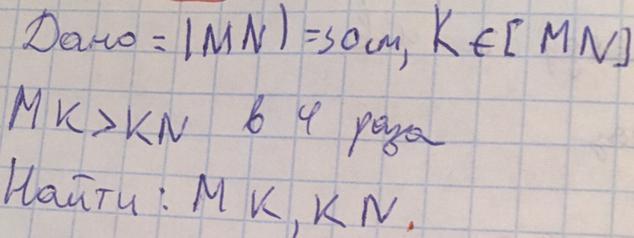 Дано = |MN| = 30 см, K ∈ [MN]
MK > KN в 4 раза
Найти: MK, KN.